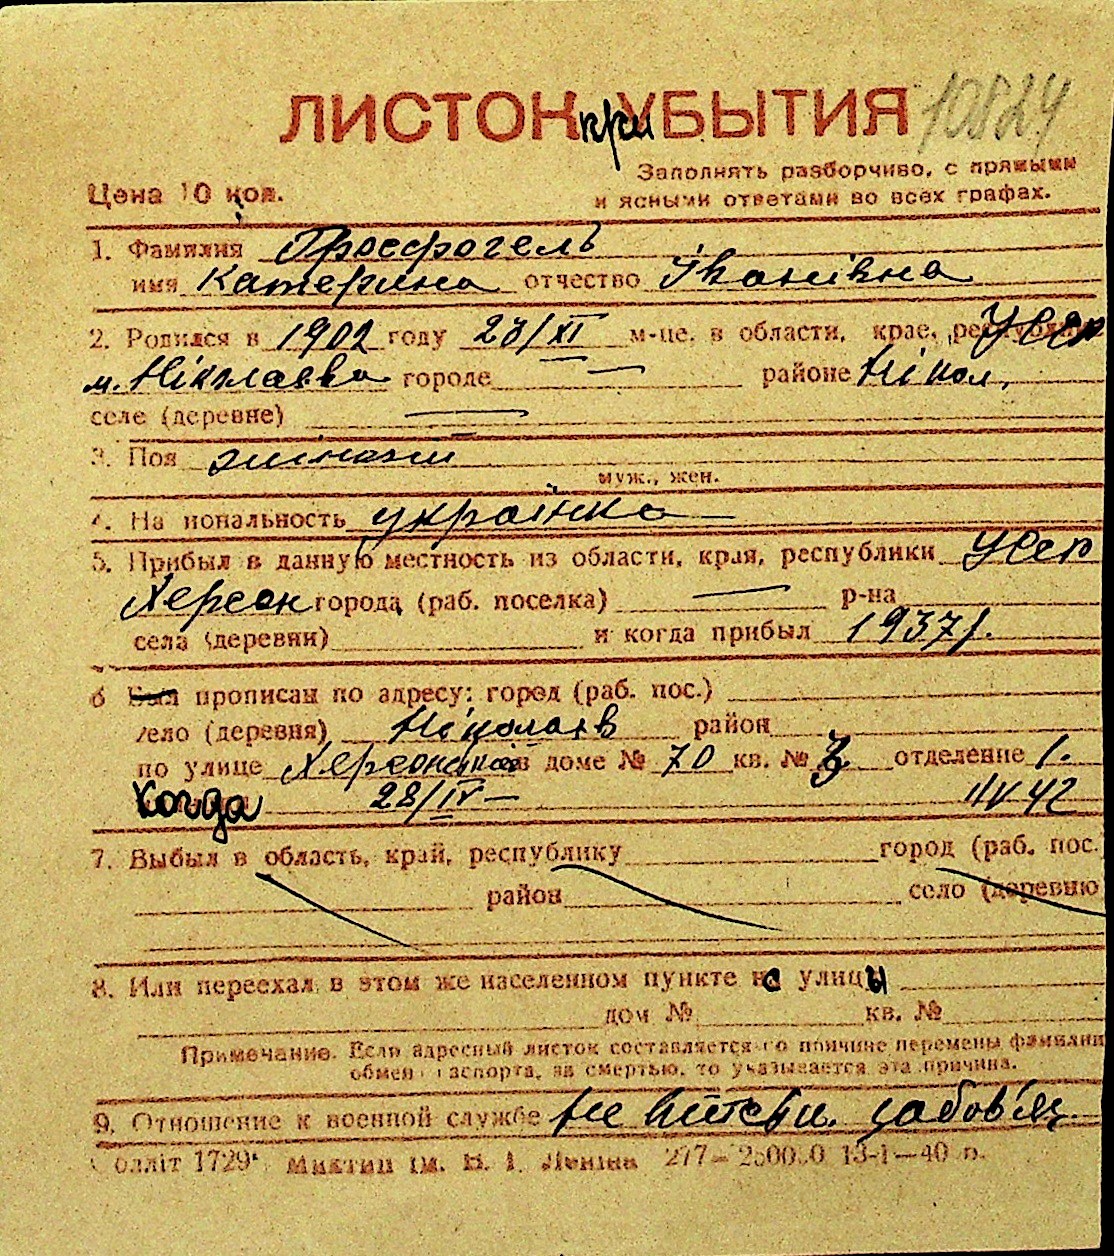 ЛИСТОК при УБЫТИЯ 10824
Заполнять разборчиво, с прямыми
Цена 10 коп. и ясными ответами во всех графах.
1. Фамилия
имя Катерина отчество Іванівна
2. Родился в 1902 году 23/XI м-це, в области, крае, республике УССР
м. Ніколаєва городе — районе Нікол.
селе (деревне) —
3. Пол жіночій
муж., жен.
4. Национальность українка
5. Прибыл в данную местность из области, края, республики УССР
Херсон города (раб. поселка) — р-на
села (деревни) и когда прибыл 1937 р.
6 Был прописан по адресу: город (раб. пос.)
село (деревня) Ніколаев район
по улице Херсонській в доме № 70 кв. № 3 отделение 1.
Когда 28/IV — 1/V 42
7. Выбыл в область, край, республику город (раб. пос.
район село (деревню
8. Или переехал в этом же населенном пункте на улицы
дом № кв. №
Примечание. Если адресный листок составляется по причине перемены фамилии
обмен паспорта, за смертью, то указывается эта причина.
9. Отношение к военной службе не війскви. забов'яз.
Облліт 1729 Миктип ім. В. І. Леніна 277— 250000 13-1—40 р.